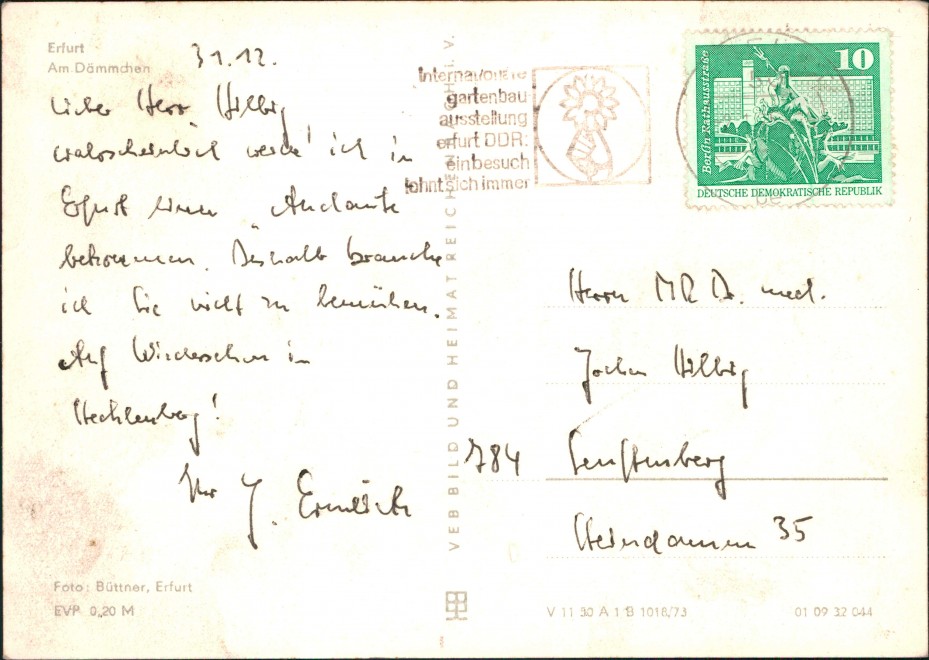 Erfurt
Am Dämmchen
31.12.
Lieber Herr Hilbig
wahrscheinlich werde ich in
Erfurt einen
bekommen. Deshalb brauche
ich Sie nicht zu bemühen.
Auf Wiedersehen in
Ihr J.
Foto: Büttner, Erfurt
EVP 0,20 M
VEB BILD UND HEIMAT REICHENBACH I. V.
Internationale
gartenbau-
ausstellung
erfurt DDR:
ein besuch
lohnt sich immer
Berlin Rathausstraße
10
DEUTSCHE DEMOKRATISCHE REPUBLIK
Herrn MR Dr. med.
Jochen Hilbig
784 Senftenberg
Steindamm 35
V 11 30 A 1 B 1018/73
01 09 32 044